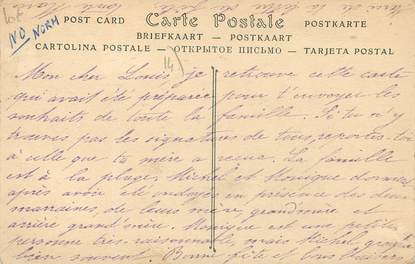 lot
N°0 NORM
POST CARD Carte Postale POSTKARTE
BRIEFKAART — POSTKAART
CARTOLINA POSTALE — ОТКРЫТОЕ ПИСЬМО — TARJETA POSTAL
14
Mon cher Louis, je retrouve cette carte
qui avait été préparée pour t'envoyer les
souhaits de toute la famille. Si tu n'y
trouves pas les signatures de tous, reportes-toi
à celle que ta mère a reçue. La famille
est à la plage, Michel et Monique dorment
après avoir été ondoyés en présence des deux
marraines, de leurs mère, grand'mère et
arrière grand'mère. Monique est une petite
personne très raisonnable, mais Michel grogne
bien souvent. Bonne fête et tous baisers